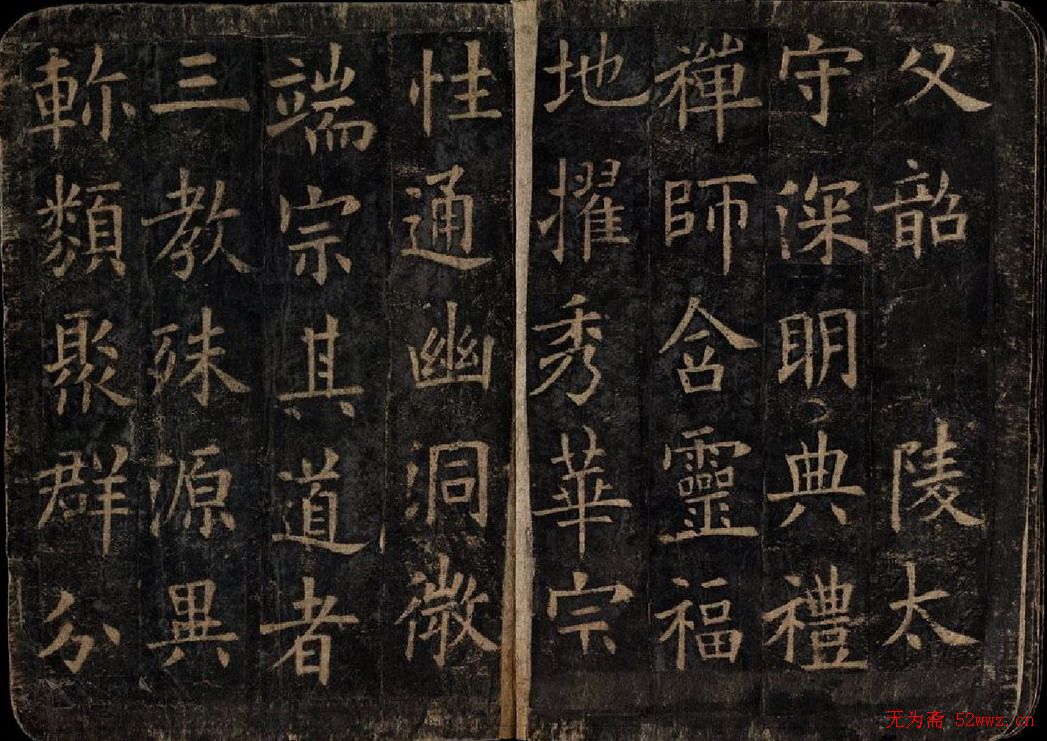 父韶陵太
守深明典禮
禪師含靈福
地擢秀華宗
性通幽洞微
端宗其道者
三教殊源異
軫類聚群分
无为斋 52wwz.cn